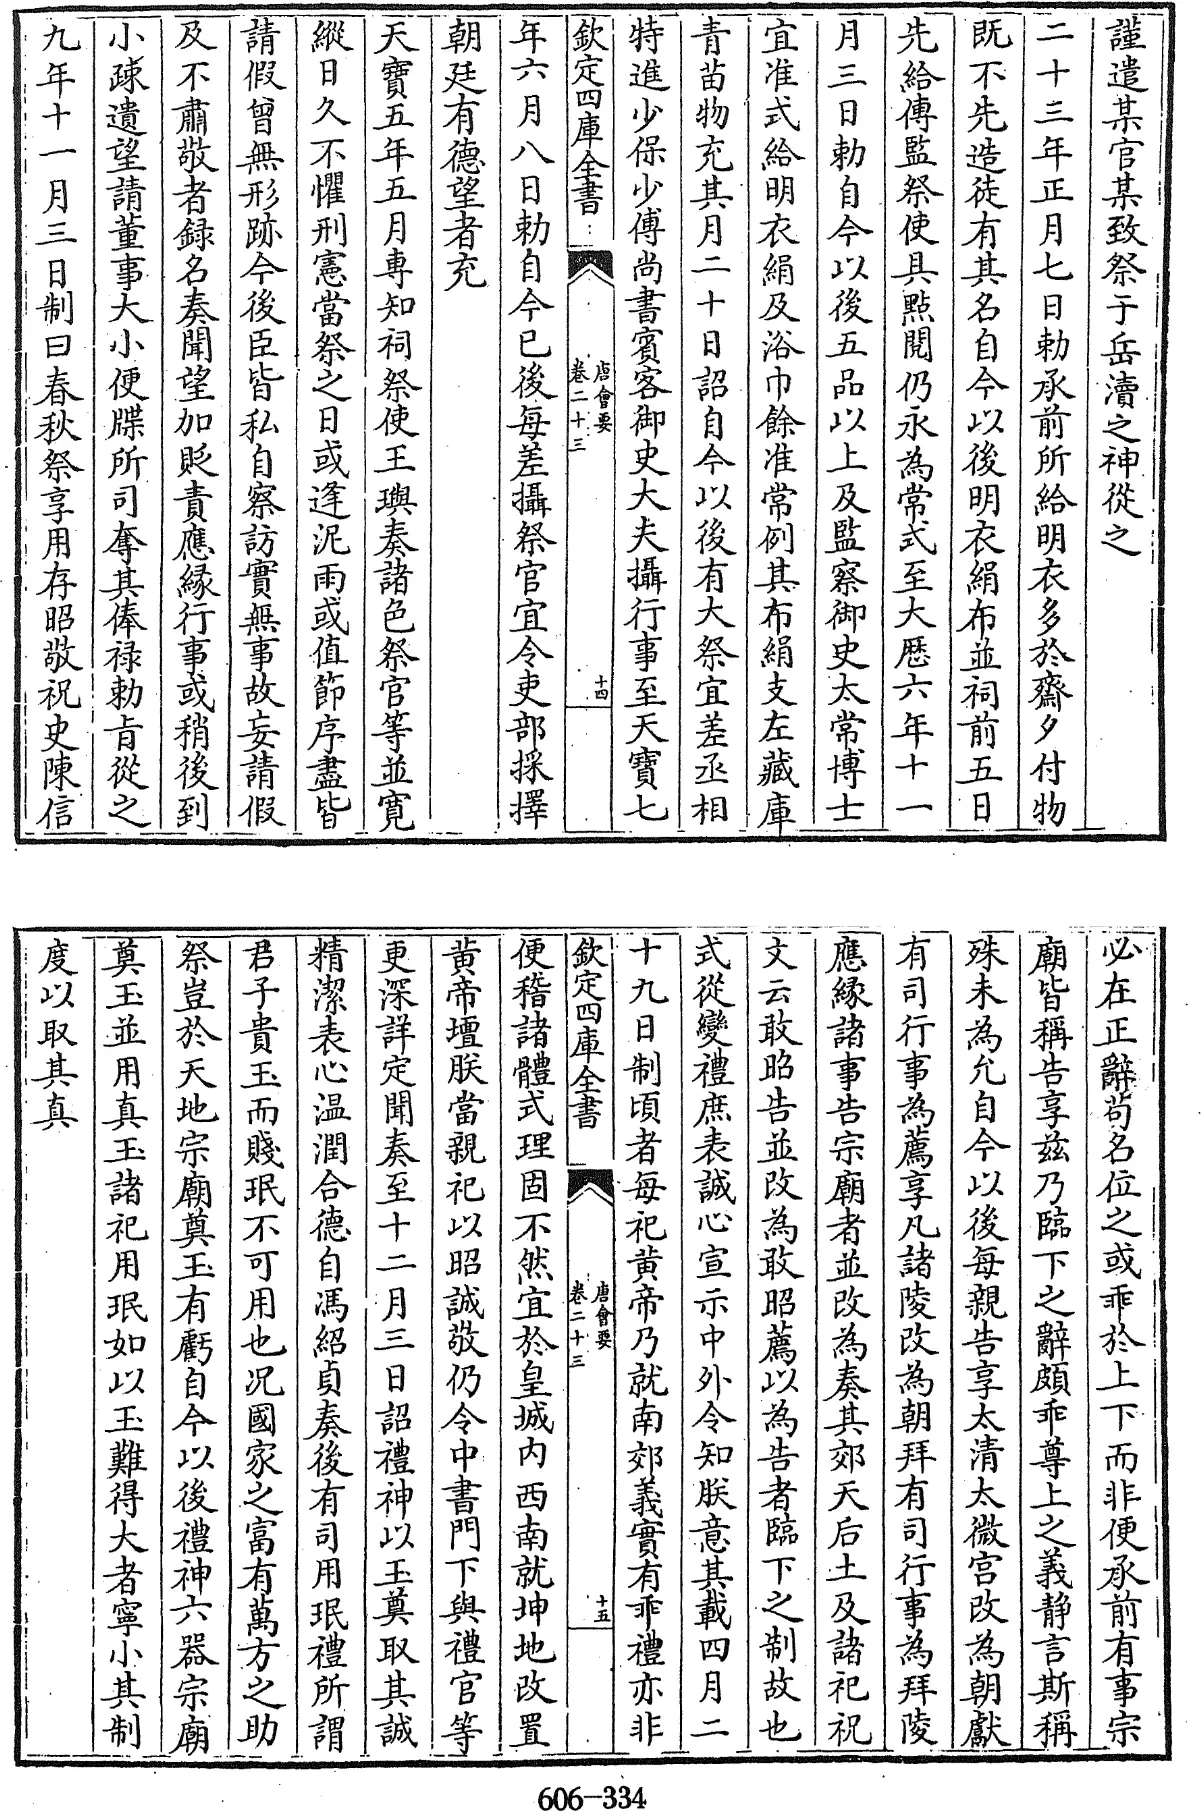 謹遣某官某致祭于岳瀆之神從之
二十三年正月七日勅承前所給明衣多於齋夕付物
既不先造徒有其名自今以後明衣絹布並祠前五日
先給傳監祭使具點閱仍永為常式至大厯六年十一
月三日勅自今以後五品以上及監察御史太常博士
宜准式給明衣絹及浴巾餘准常例其布絹支左藏庫
青苗物充其月二十日詔自今以後有大祭宜差丞相
特進少保少傅尚書賓客御史大夫攝行事至天寶七
欽定四庫全書
唐會要
卷二十三
十四
年六月八日勅自今已後每差攝祭官宜令吏部採擇
朝廷有德望者充
天寶五年五月專知祠祭使王璵奏諸色祭官等並寛
縱日久不懼刑憲當祭之日或逢泥雨或值節序盡皆
請假曾無形跡今後臣皆私自察訪實無事故妄請假
及不肅敬者録名奏聞望加貶責應緣行事或稍後到
小疎遺望請董事大小便牒所司奪其俸禄勅旨從之
九年十一月三日制曰春秋祭享用存昭敬祝史陳信
必在正辭苟名位之或乖於上下而非便承前有事宗
廟皆稱告享兹乃臨下之辭頗乖尊上之義静言斯稱
殊未為允自今以後每親告享太清太微宫改為朝獻
有司行事為薦享凡諸陵改為朝拜有司行事為拜陵
應緣諸事告宗廟者並改為奏其郊天后土及諸祀祝
文云敢昭告並改為敢昭薦以為告者臨下之制故也
式從變禮庶表誠心宣示中外令知朕意其載四月二
十九日制頃者每祀黄帝乃就南郊義實有乖禮亦非
欽定四庫全書
唐會要
卷二十三
十五
便稽諸體式理固不然宜於皇城内西南就坤地改置
黄帝壇朕當親祀以昭誠敬仍令中書門下與禮官等
更深詳定聞奏至十二月三日詔禮神以玉奠取其誠
精潔表心温潤合德自馮紹貞奏後有司用珉禮所謂
君子貴玉而賤珉不可用也况國家之富有萬方之助
祭豈於天地宗廟奠玉有虧自今以後禮神六器宗廟
奠玉並用真玉諸祀用珉如以玉難得大者寧小其制
度以取其真
606-334